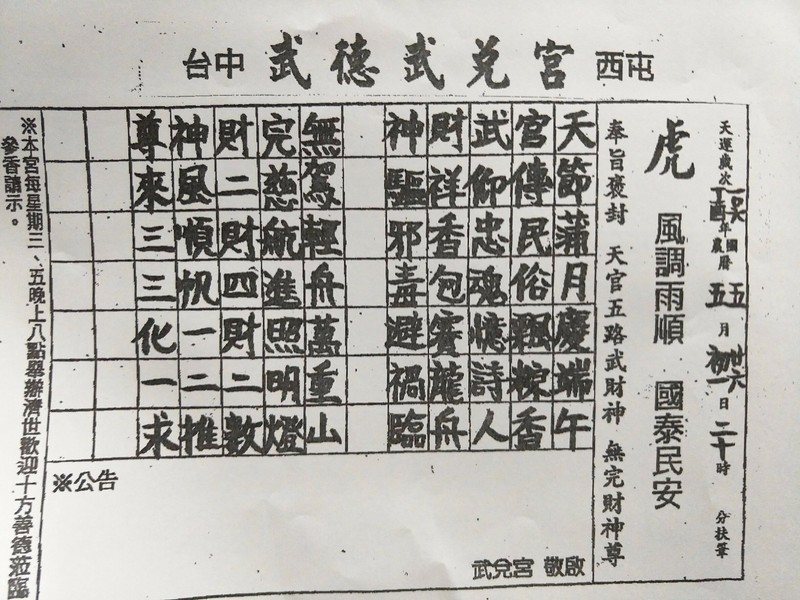 台中 武德武兌宮 西屯
天運歲次丁酉年 國曆 五月廿六日二十時 分扶筆
農曆 五月初一
虎 風調雨順 國泰民安
奉旨褒封 天官五路武財神 無完財神尊
天節蒲月慶端午
官傳民俗飄粽香
武仰忠魂憶詩人
財祥香包賽龍舟
神驅邪毒避禍臨
無駕輕舟萬重山
完慈航進照明燈
財二財四財二數
神風順帆一二推
尊來三三化一求
※公告
武兌宮 敬啟
※本宮每星期三、五晚上八點舉辦濟世歡迎十方善德蒞臨
參香請示。